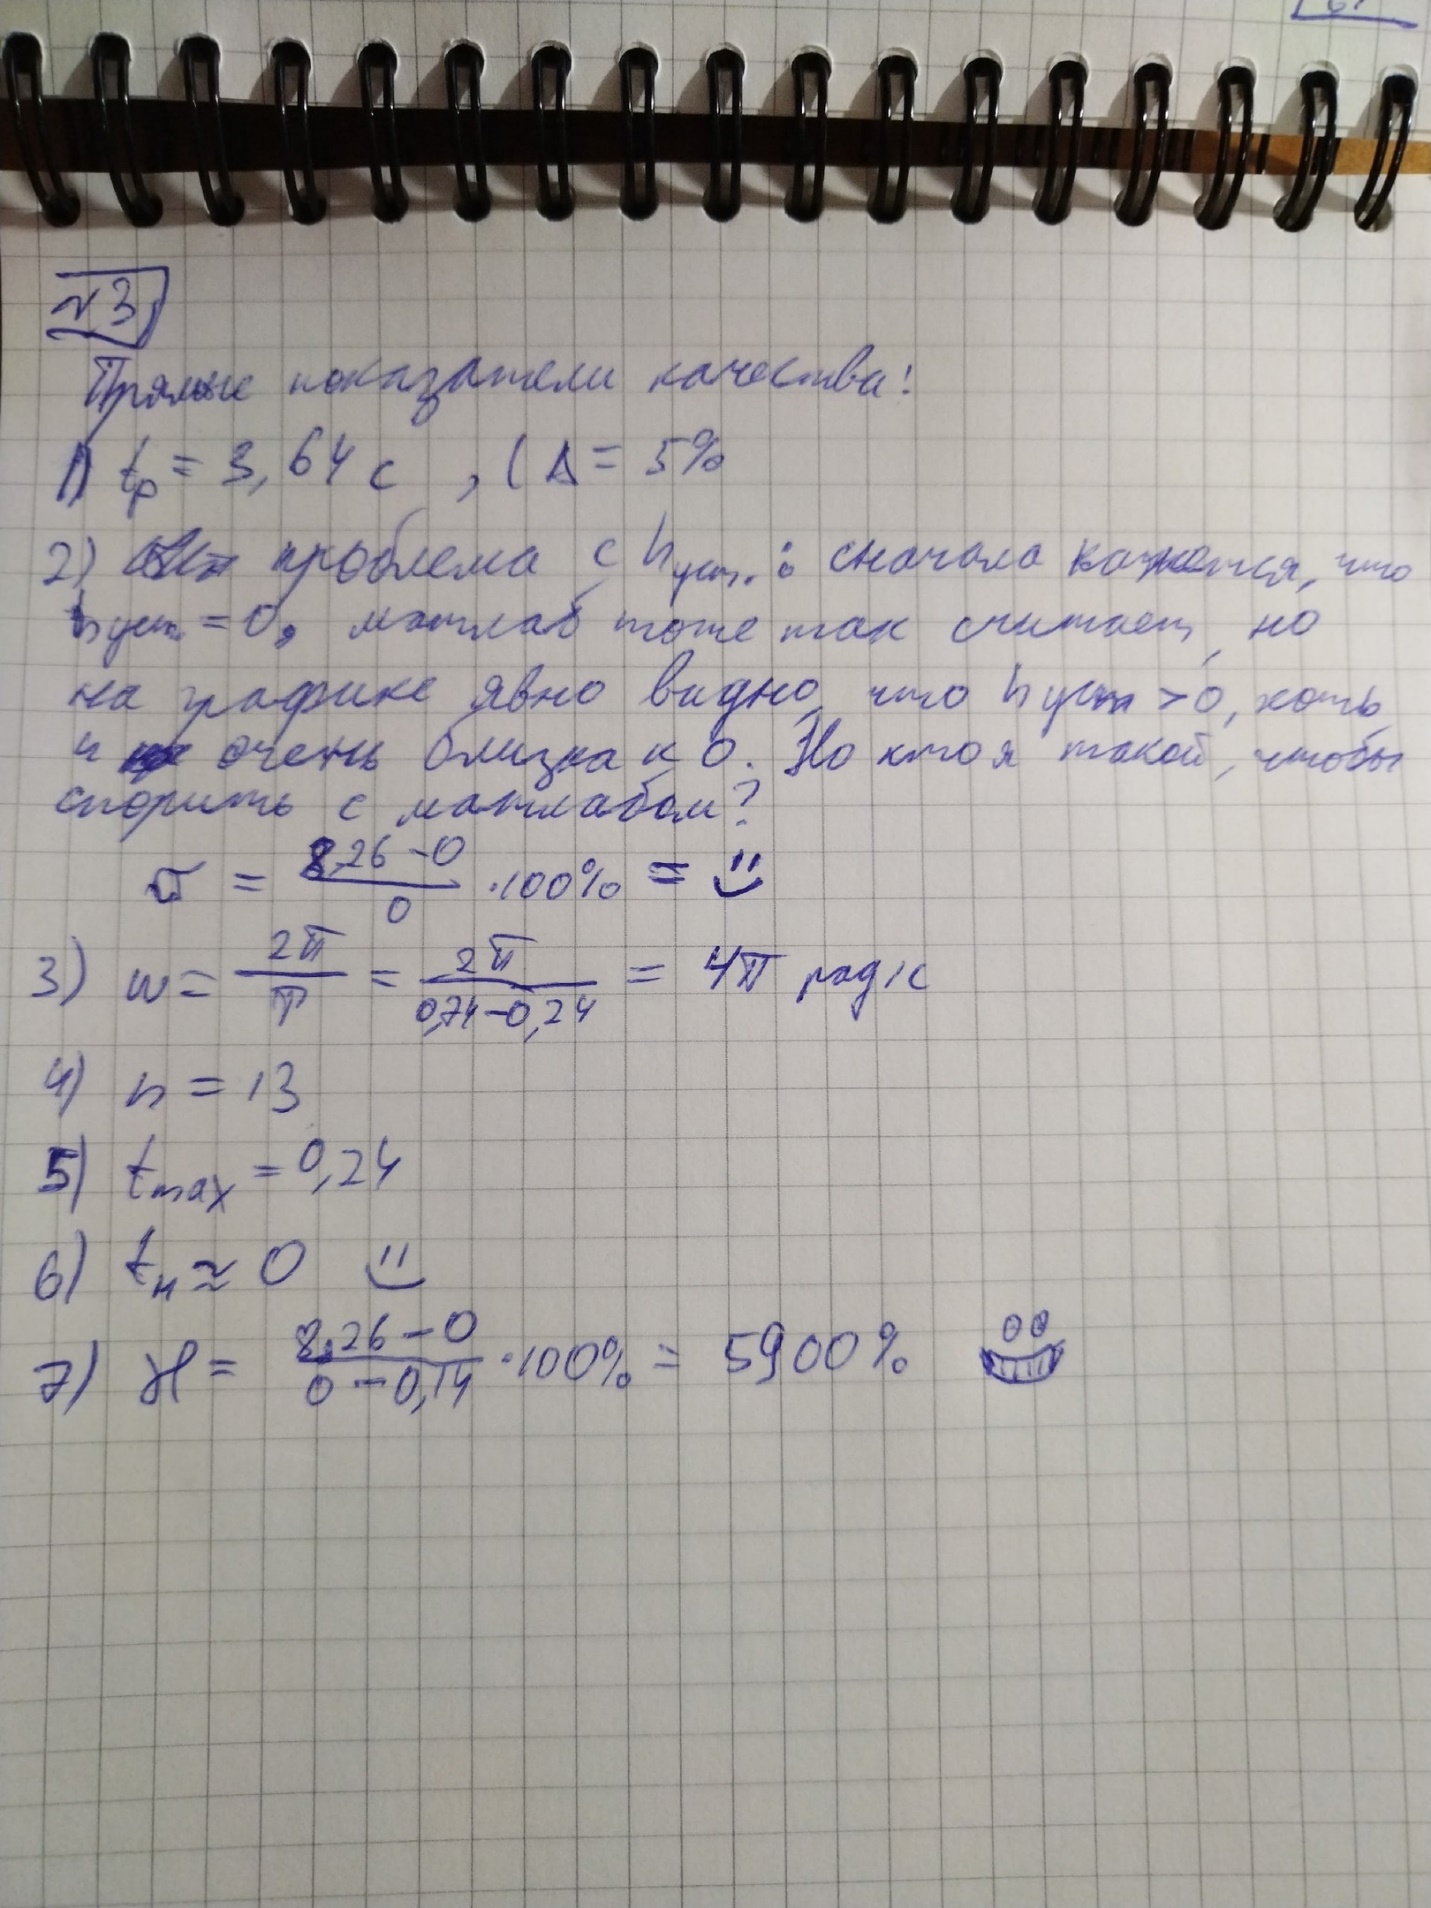 №3
Прямые показатели качества:
1) tр = 3,64 с , (Δ = 5%
2) проблема с hуст. : сначала кажется, что
hуст. = 0, матлаб тоже так считает, но
на графике явно видно, что hуст > 0, хоть
и очень близка к 0. Но кто я такой, чтобы
спорить с матлабом?
σ = (8,26 - 0)/0 · 100% =
3) w = 2π/T = 2π/(0,74 - 0,24) = 4π рад/с
4) n = 13
5) tmax = 0,24
6) tн ≈ 0
7) ϰ = (8,26 - 0)/(0 - 0,14) · 100% = 5900%